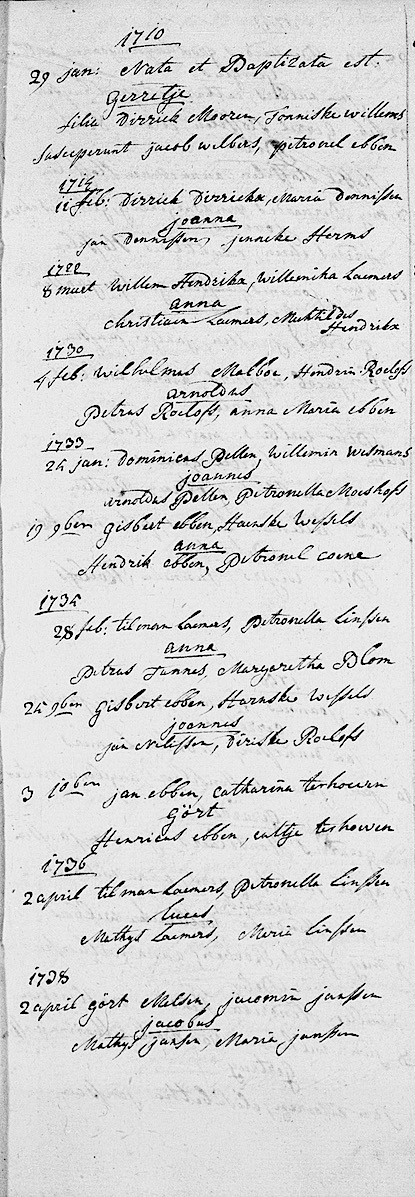 1710
29 jan: Nata et Baptizata est.
Gerretje
filia Dirrick Mooren, Tonniske willems
Susceperunt jacob welbers, petronel ebben
1714
11 feb: Dirrick Dirrickx, Maria Dennissen
joanna
jan Dennissen, jenneke Herms
1722
8 maert willem Hendrikx, willemika Laemers
anna
Christiaen Laemers, Mechtildis
Hendrikx
1730
4 feb: wilhelmus Malboe, Hendrin Roeloffs
arnoldus
Petrus Roeloffs, anna Maria ebben
1733
24 jan: Dominicus Pellen, willemin wismans
joannes
arnoldus Pellen, Petronella Moeshoffs
19 9ben gisbert ebben, Haenske wessels
anna
Hendrik ebben, Petronel coene
1734
28 feb: tilman Laemers, Petronella Linssen
anna
Petrus Tunnes, Margaretha Blom
24 9ben gisbert ebben, Harnske wessels
joannes
jan Nelissen, Diriske Roeloffs
3 10ben jan ebben, catharina terhoeven
gört
Henricus ebben, eultje terhoeven
1736
2 april tilman Laemers, Petronella Linssen
lucas
Mathys Laemers, Maria linssen
1738
2 april gört Melsen, jacomin janssen
jacobus
Mathys jansen, Maria janssen